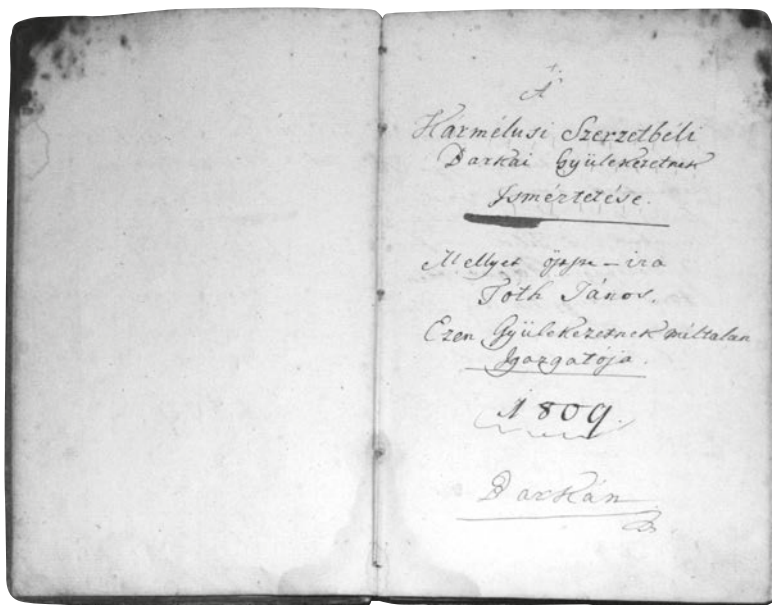 A
Karmélusi Szerzetbéli
Barkai Gyülekezetnek
Isméretése.
Mellyet öszsze-ira
Toth János.
Ezen Gyülekezetnek méltalan
Igazgatója.
1809.
Barkán